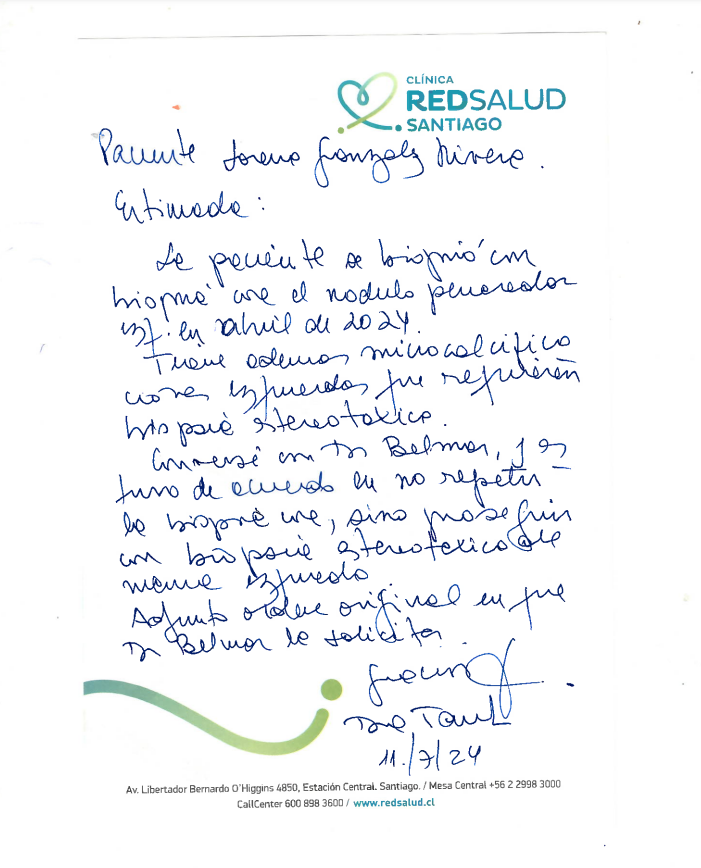 CLÍNICA
REDSALUD
SANTIAGO
Paciente Lorena González Rivera.
Estimada:
La paciente se biopsió con
biopsia core el nodulo
izq. en abril de 2024.
Tiene ademas microcalcifica
ciones izquierdas que requieren
biopsia estereotaxica.
Conversé con Dr Belmar, y es
tuvo de acuerdo en no repetir
la biopsia core, sino proseguir
con biopsia estereotaxica de
mama izquierda
Adjunto orden original en que
Dr Belmar la solicita.
Gracias
Dra
11/7/24
Av. Libertador Bernardo O'Higgins 4850, Estación Central. Santiago. / Mesa Central +56 2 2998 3000
CallCenter 600 898 3600 / www.redsalud.cl